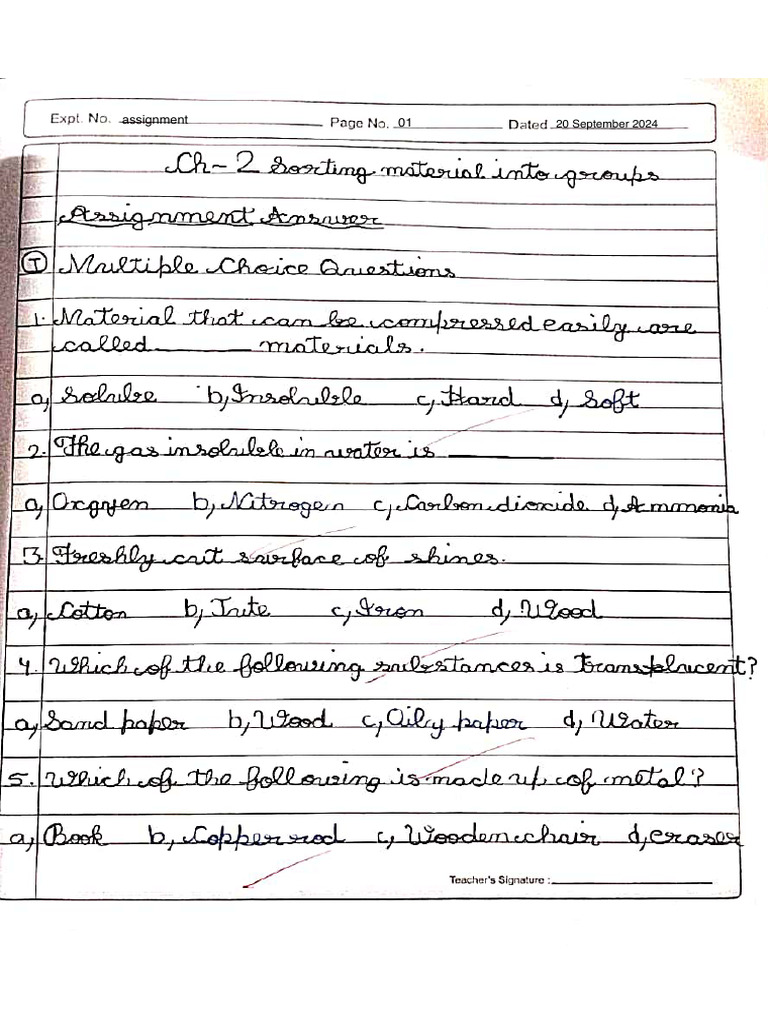 Expt. No. assignment Page No. 01 Dated 20 September 2024
Ch-2 Sorting material into groups
Assignment Answer
I Multiple Choice Questions
1. Material that can be compressed easily are
called ______ materials.
a, Solube b, Insoluble c, Hard d, Soft
2. The gas insoluble in water is ______
a, Oxgyen b, Nitrogen c, Carbon dioxide d, Ammonia
3. Freshly cut surface of shines.
a, Cotton b, Jute c, Iron d, Wood
4. Which of the following substances is translucent?
a, Sand paper b, Wood c, Oily paper d, Water
5. Which of the following is made up of metal?
a, Book b, Copper rod c, Wooden chair d, eraser
Teacher's Signature : ______